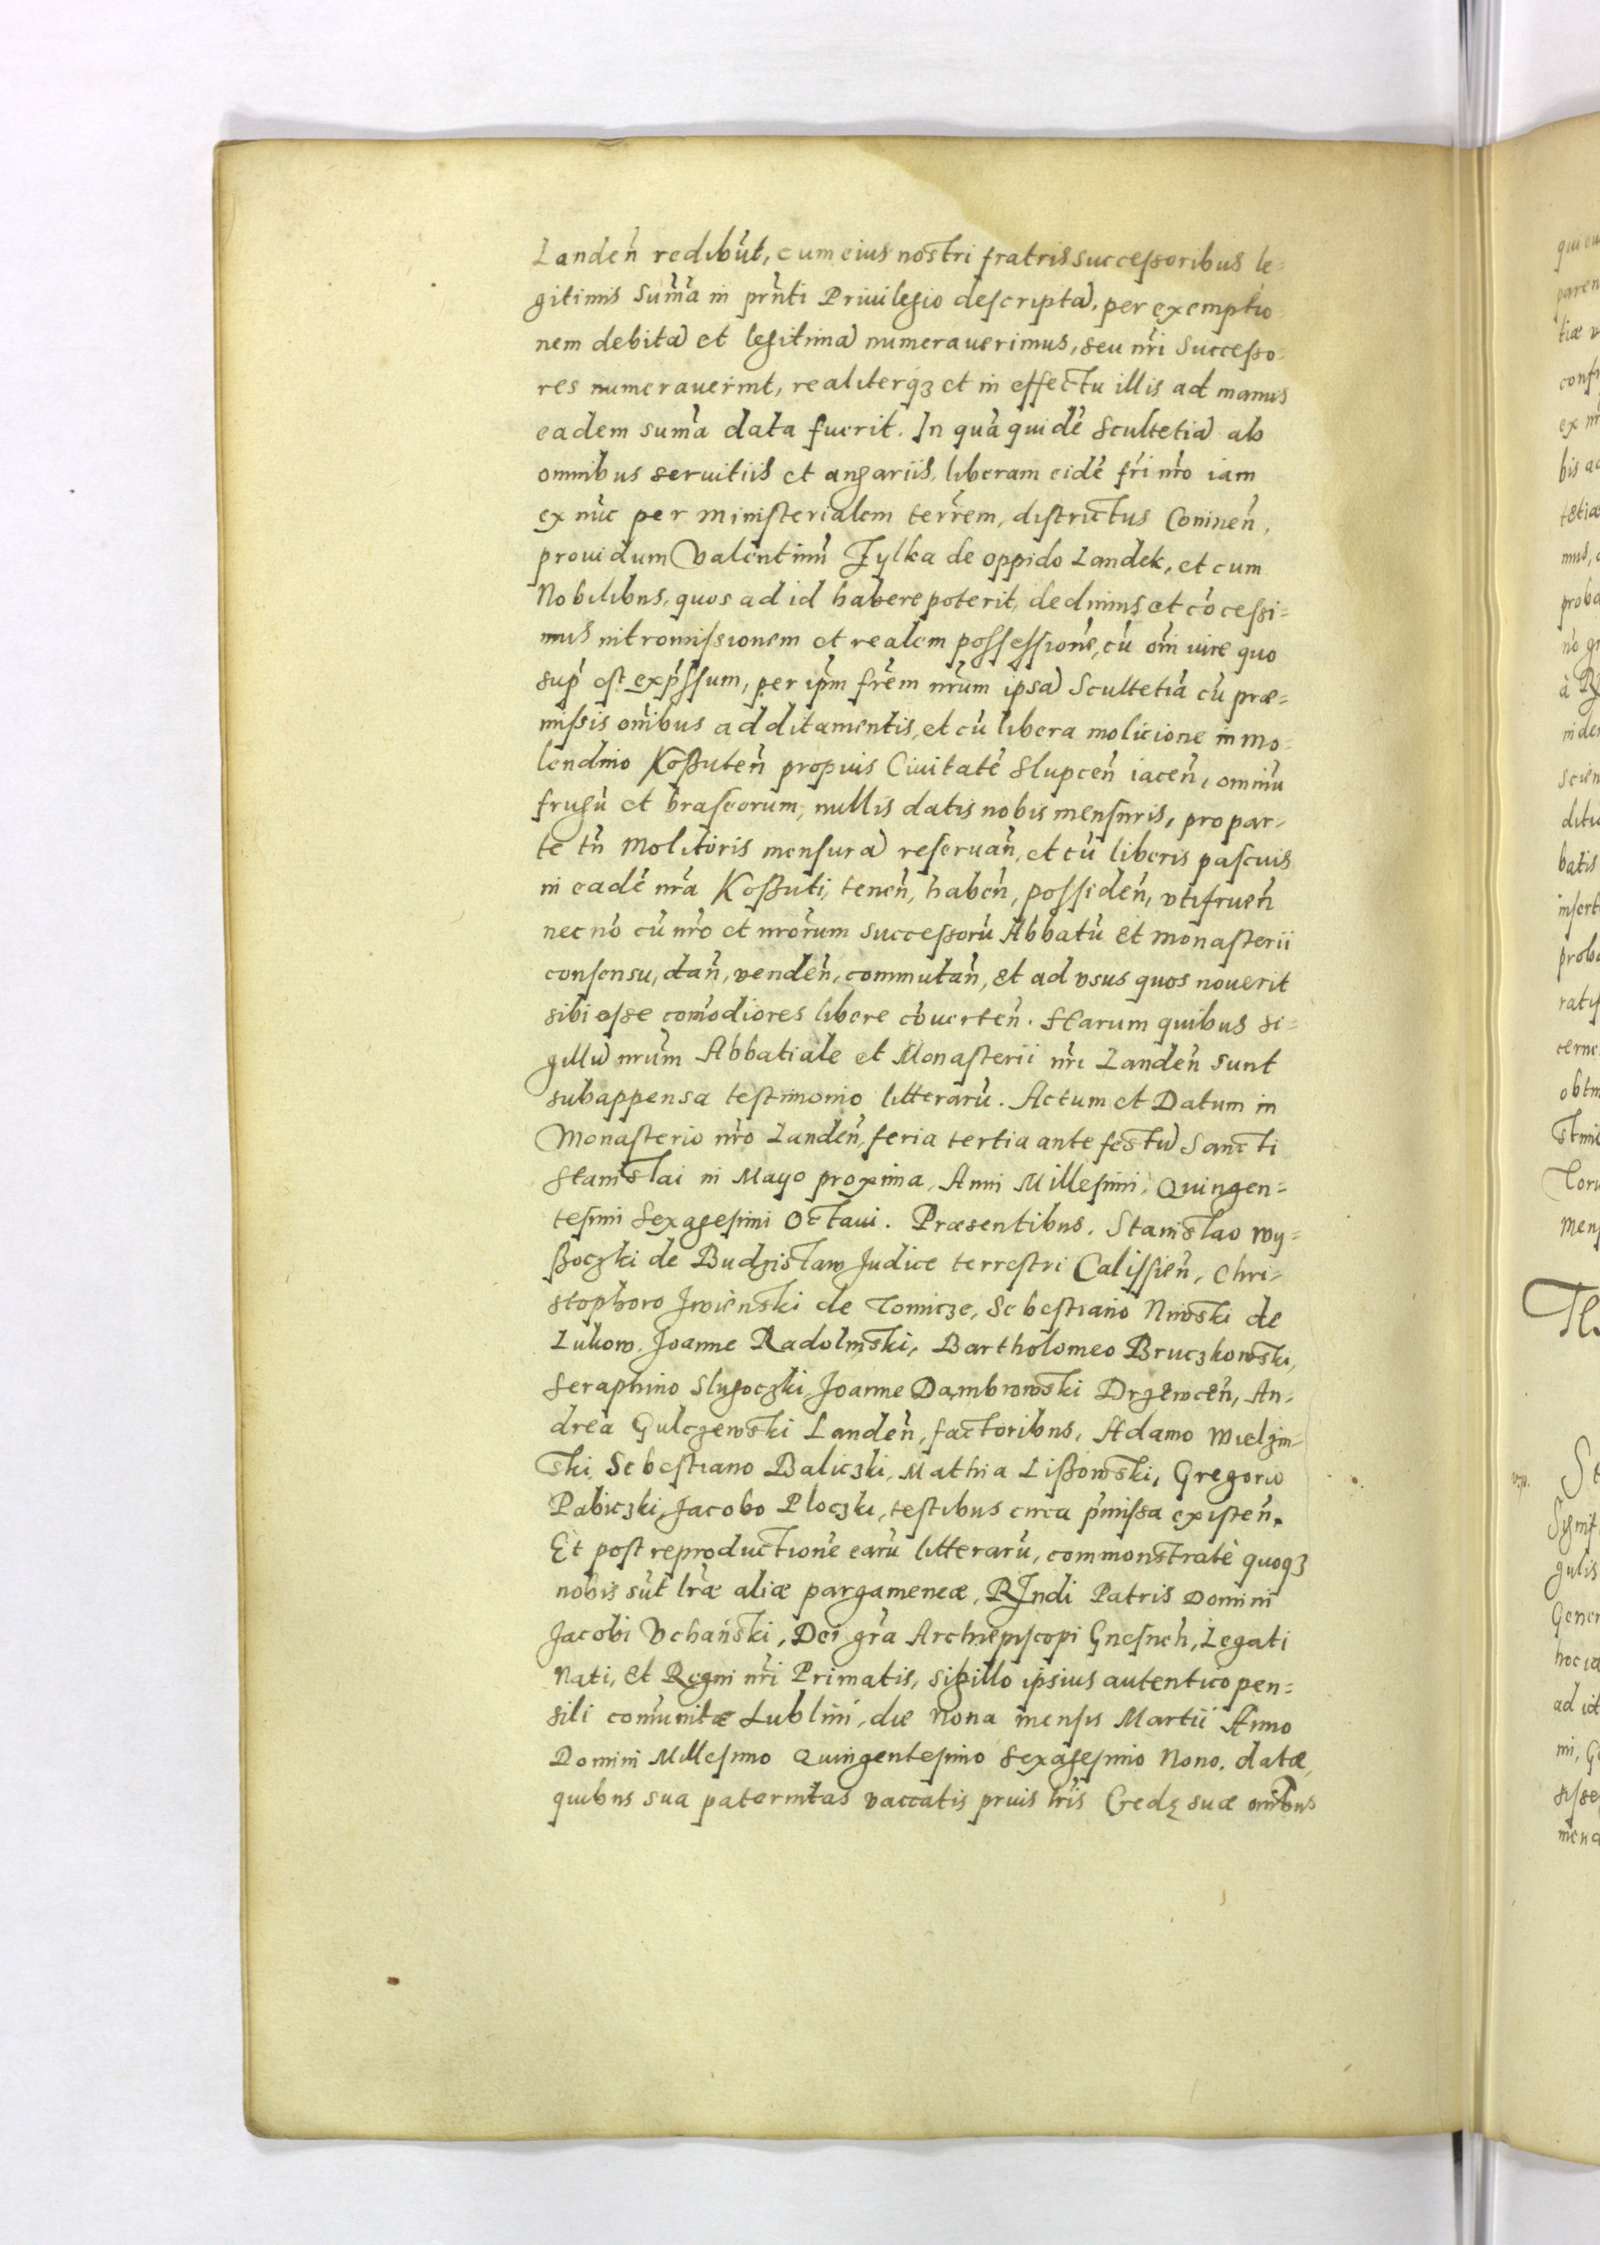 Landeñ redibūt, cum eius nostri fratris successoribus le=
gitimis Sum̄a in prn̄ti Priuilegio descriptā, per exemptio
nem debitā et legitimā numerauerimus, seu nr̄i Successo=
res numerauerint, realiterq3 et in effectu illis ad manus
eadem sum̄a data fuerit. In quā quidē Scultetiā ab
omnibus seruitiis et angariis, liberam eidē fr̄i nr̄o iam
ex nūc per Ministerialem terrēm, districtus Coninen̄,
prouidum Valentinū Fylka de oppido Landek, et cum
Nobilibus, quos ad id habere poterit, dedimus et cōcessi=
mus intromissionem et realem possessionē, cū om̄i iure quo
sup̄ est exp̄ssum, per ip̄m frēm nrūm ipsā Scultetiā cū præ=
missis om̄ibus additamentis, et cū libera molicione in mo=
lendino Koßuten̄ propius Ciuitatē Slupcen̄ iacen̄, omniū
frugū et braseorum, nullis datis nobis mensuris, pro par=
te tn̄ Molitoris mensurā reseruan̄, et cū liberis pascuis
in eadē nr̄a Koßuti, tenen̄, haben̄, possiden̄, vtifruen̄
nec nō cū nr̄o et nrōrum successorū Abbatū et Monasterii
consensu, dan̄, venden̄, commutan̄, et ad vsus quos nouerit
sibi esse com̄odiores libere cōuerten̄. Harum quibus si=
gillū nrūm Abbatiale et Monasterii nr̄i Landen̄ sunt
subappensa testimonio litterarū. Actum et Datum in
Monasterio nr̄o Landen̄, feria tertia ante festū Sancti
Stanislai in Mayo proxima, Anni Millesimi, Quingen=
tesimi Sexagesimi Octaui. Præsentibus, Stanislao Wy=
ßoczki de Budzislaw Judice terrestri Calissien̄, Chri=
stophoro Jwienski de Tomicze, Sebestiano Niwski de
Lukow, Joanne Radolinski, Bartholomeo Bruczkowski,
Seraphino Slugoczki, Joanne Dambrowski Drzewcen̄, An=
drea Gulczewski Landen̄, factoribus, Adamo Wielzin=
ski, Sebestiano Baliczki, Mathia Lißowski, Gregorio
Pabiczki, Jacobo Ploczki, testibus circa p̄missa existen̄.
Et post reproductionē earū litterarū, commonstratè quoq3
nobis sūt lr̄æ aliæ pargameneæ, Rn̄di Patris Domini
Jacobi Vchański, Dei gr̄a Archiepiscopi Gnesnen̄, Legati
Nati, et Regni nr̄i Primatis, sigillo ipsius autentico pen=
sili com̄unitæ Lublini, die Nona mensis Martii Anno
Domini Millesimo Quingentesimo Sexagesimo Nono, datæ,
quibus sua paternitas vaccatis priuis lr̄is Cedę suæ om̄ibus